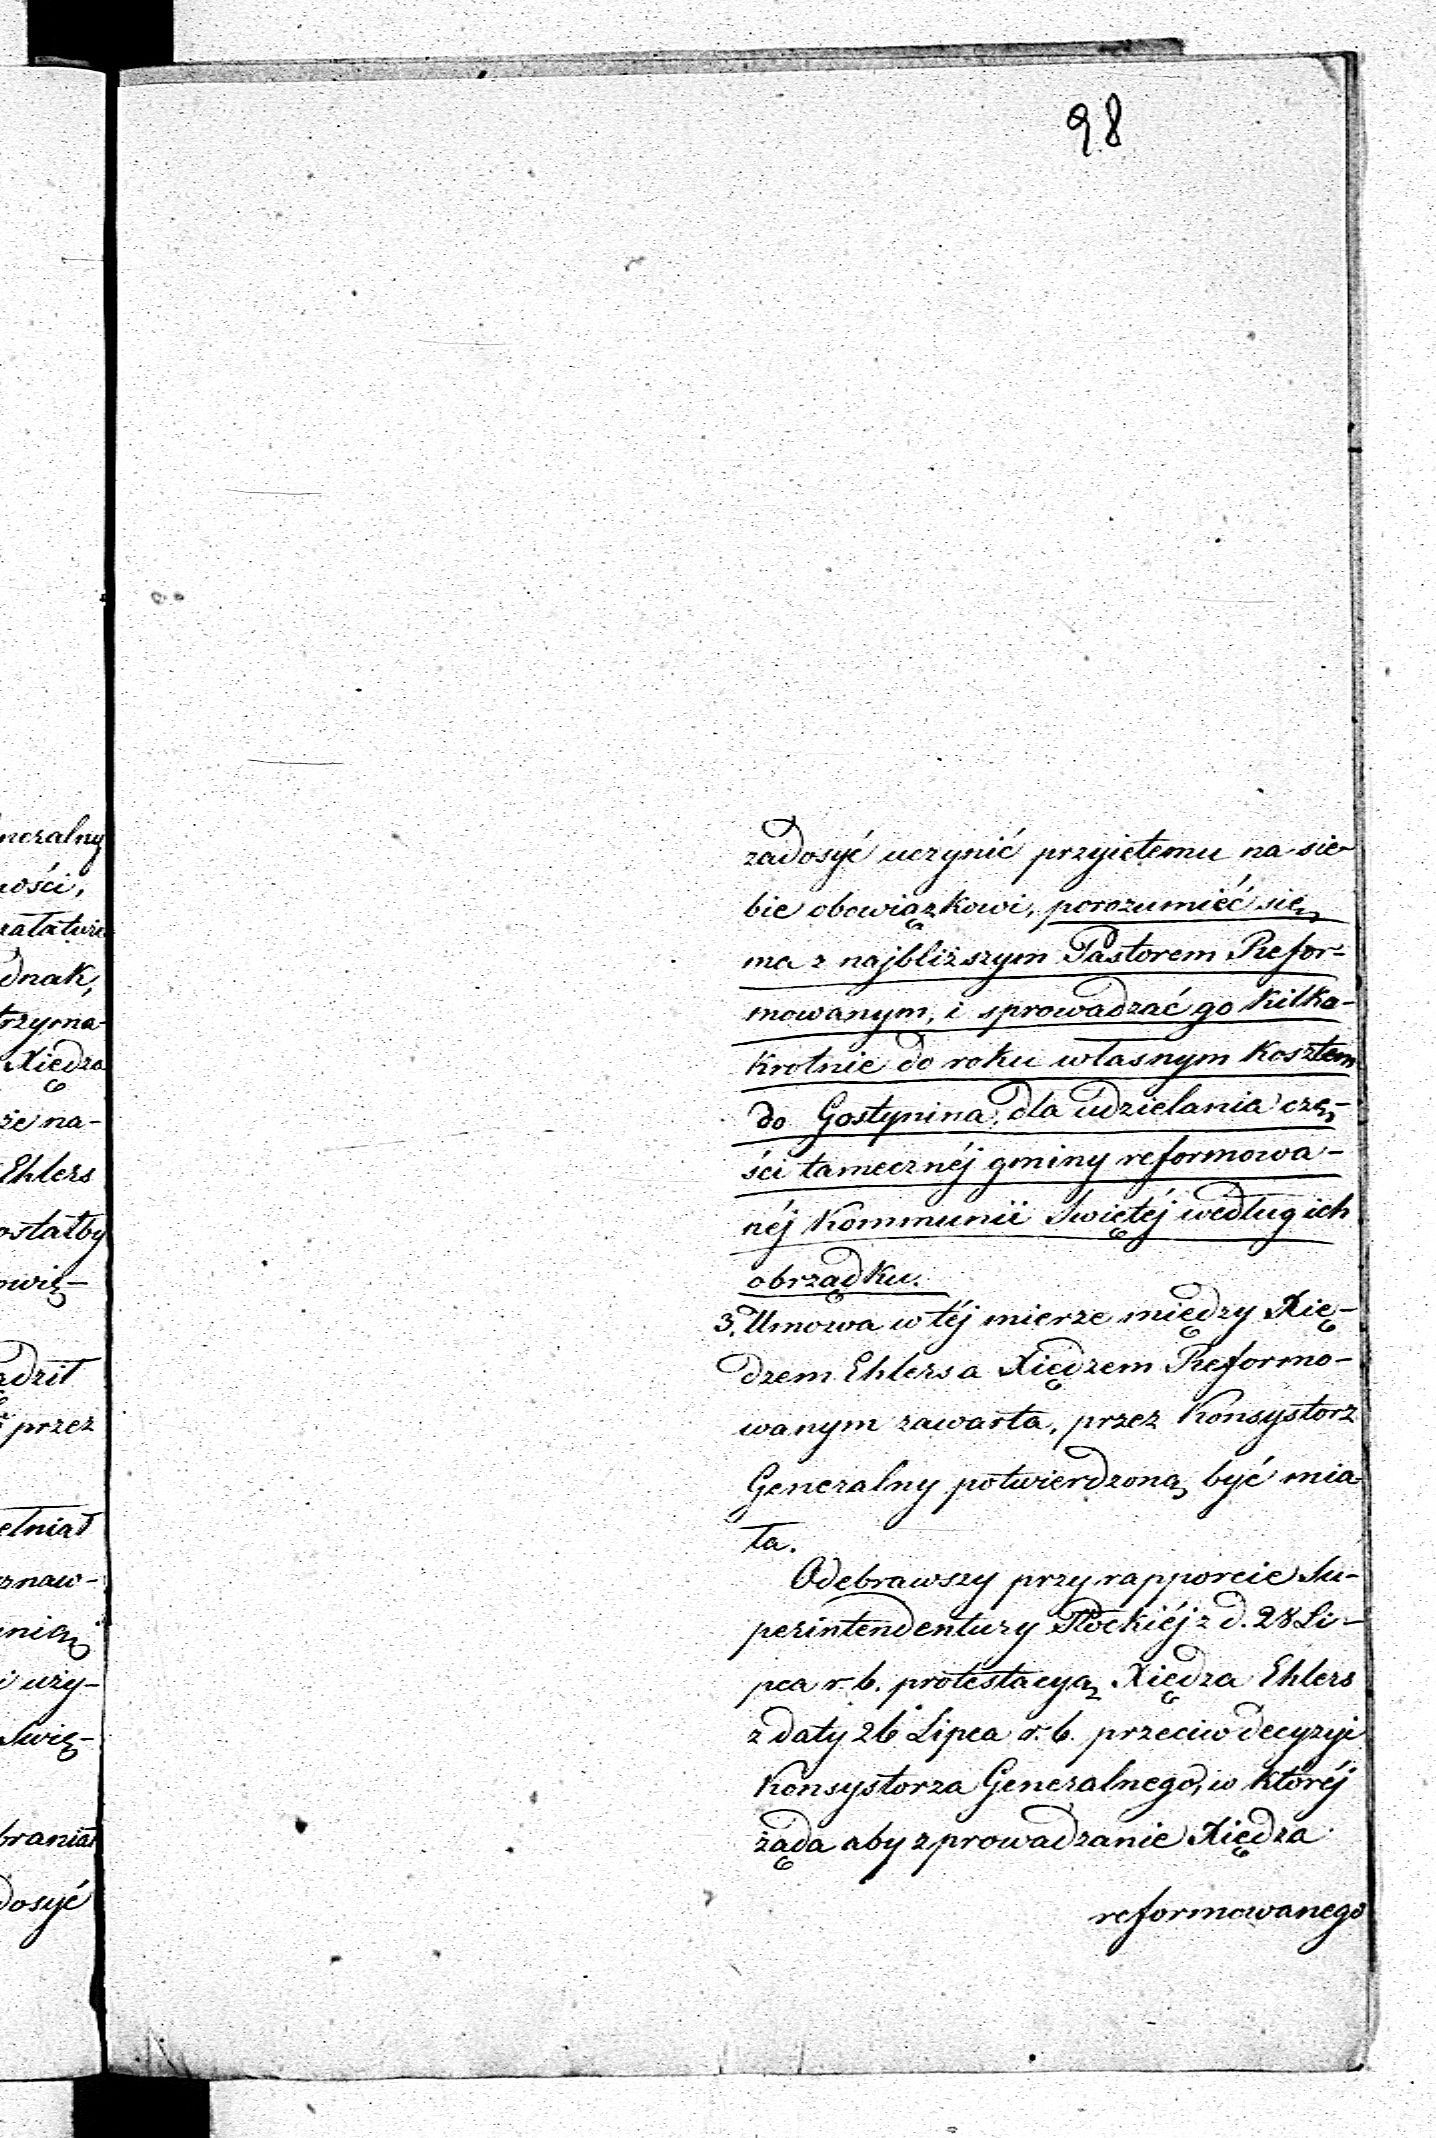 98
neralny
ności,
załatwie
dnak,
trzyma-
Xiędza
że na-
Ehlers
ostałby
owią-
ądził
przez
ełniał
znaw-
inią
i uży-
Swię-
brania
dosyć
zadosyć uczynić przyiętemu na sie-
bie obowiązkowi, porozumieć się
ma z najbliższym Pastorem Refor-
mowanym, i sprowadzać go kilka-
krotnie do roku własnym kosztem
do Gostynina, dla udzielania czę-
ści tamecznéj gminy reformowa-
néj Kommunii Swiętéj według ich
obrządku.
3. Umowa w téj mierze między Xię-
dzem Ehlers a Xiędzem Reformo-
wanym zawarta, przez Konsystorz
Generalny potwierdzoną być mia-
ła.
Odebrawszy przy rapporcie Su-
perintendentury Płockiéj z d. 28 Li-
pca r. b. protestacyą Xiędza Ehlers
z daty 26 Lipca r. b. przeciw decyzyi
Konsystorza Generalnego, w któréj
żąda aby zprowadzanie Xiędza
reformowanego